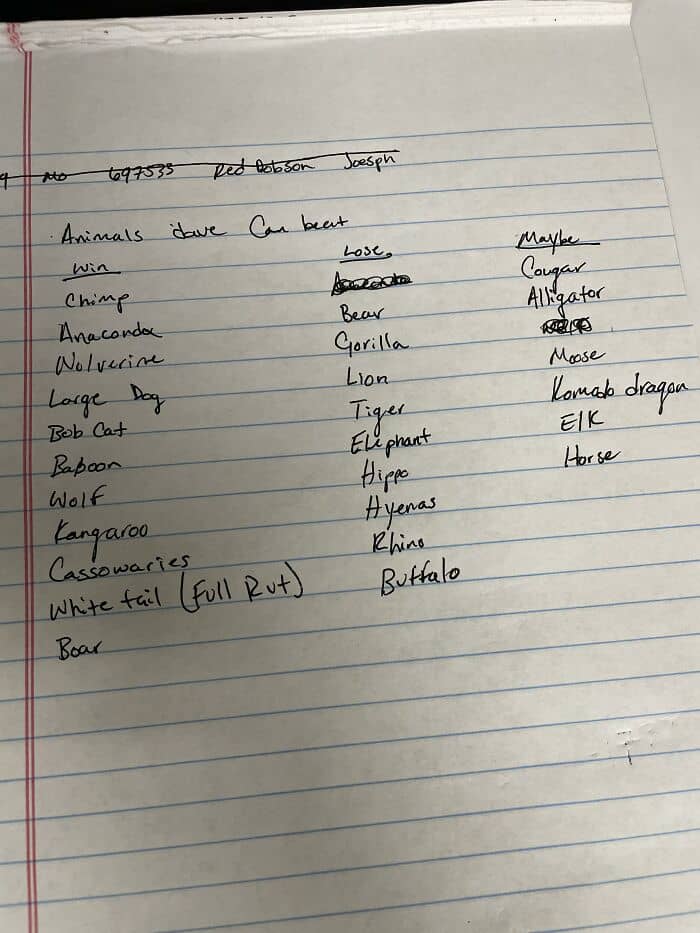 Mo 697535 Red Dobson Joesph
Animals Dave Can beat
Win
Chimp
Anaconda
Wolverine
Large Dog
Bob Cat
Baboon
Wolf
Kangaroo
Cassowaries
White tail (Full Rut)
Boar
Lose
Bear
Gorilla
Lion
Tiger
Elephant
Hippo
Hyenas
Rhino
Buffalo
Maybe
Cougar
Alligator
Moose
Komodo dragon
Elk
Horse